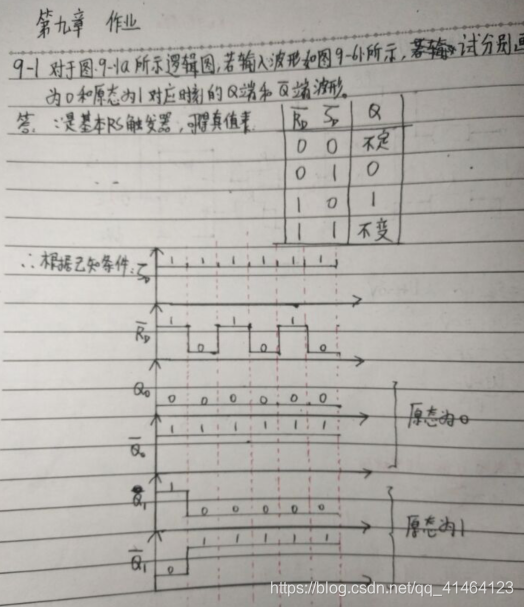 第九章 作业
9-1 对于图.9-1a所示逻辑图,若输入波形如图9-6b所示,若输入试分别画
为0和原态为1对应时刻的Q端和Q̅端波形。
答. ∵是基本RS触发器,可得真值表:
R̅D S̅D Q
0 0 不定
0 1 0
1 0 1
1 1 不变
∴根据已知条件:
S̅D 1 1 1 1 1 1
R̅D 1 0 1 0 1 0
Q0 0 0 0 0 0 0
Q̅0 1 1 1 1 1 1
原态为0
Q1 1 0 0 0 0 0
Q̅1 0 1 1 1 1 1
原态为1
https://blog.csdn.net/qq_41464123